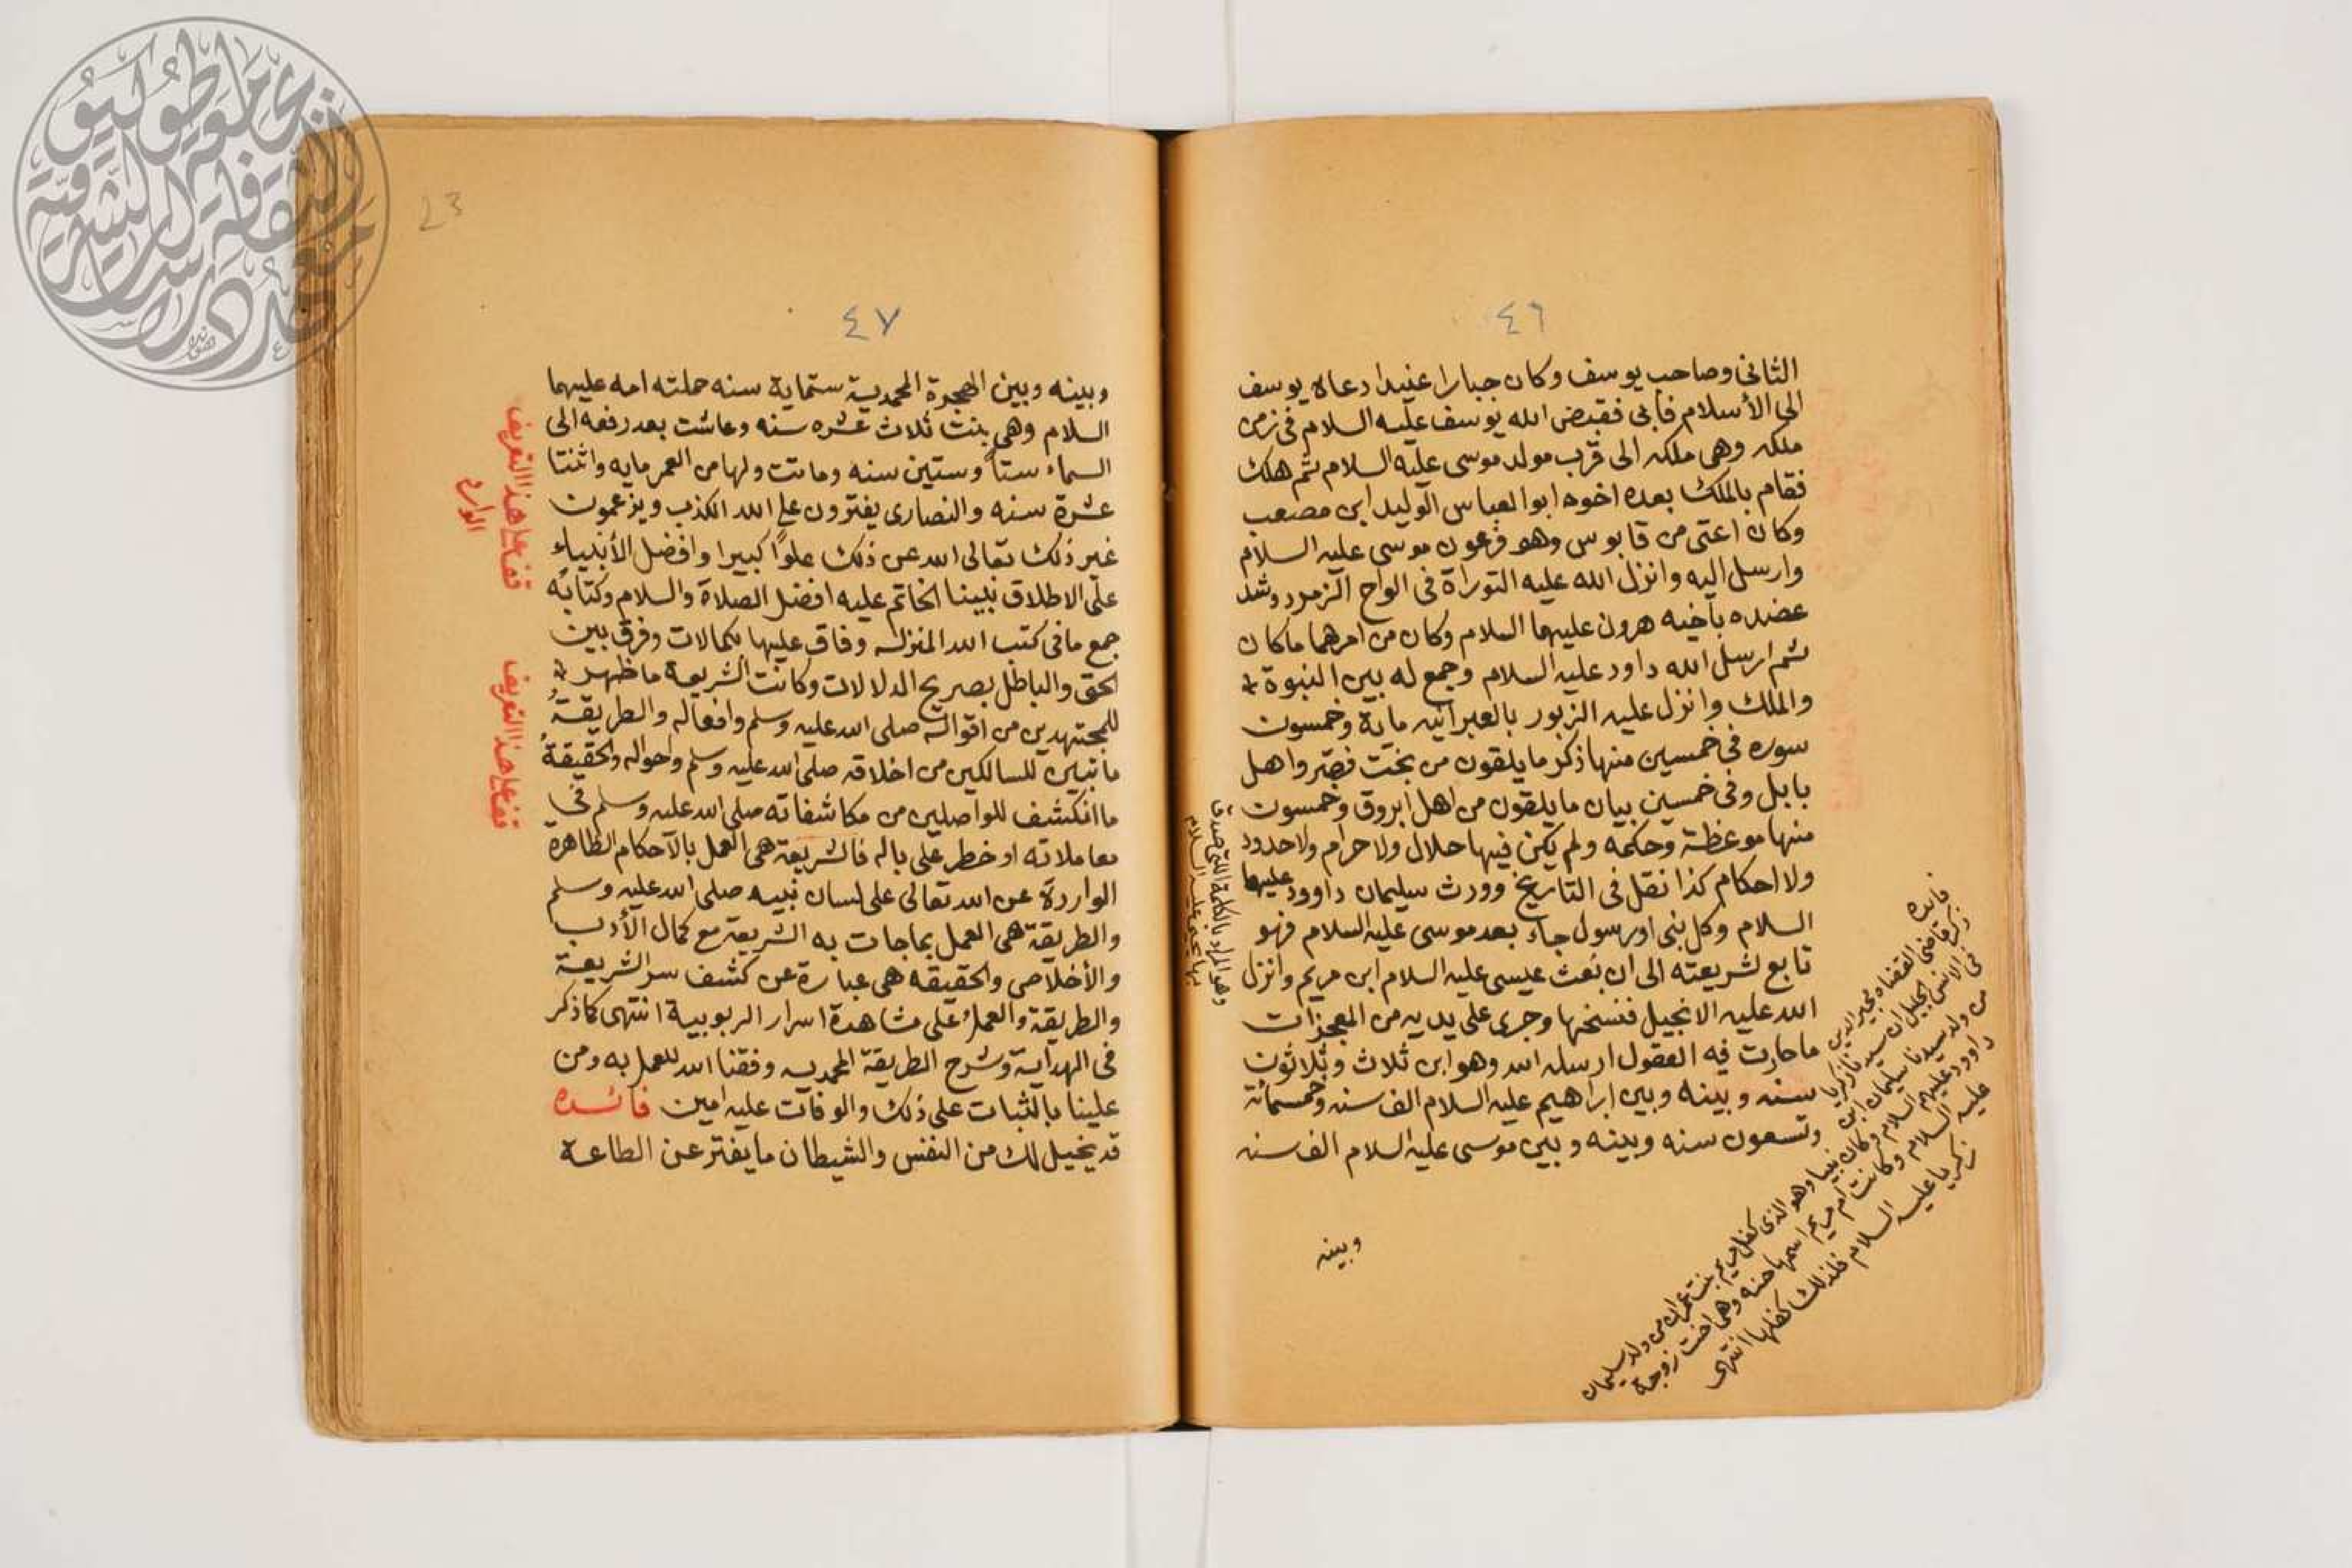 ٤٦
الثانى وصاحب يوسف وكان جبارا عنيدا دعاه يوسف
الى الأسلام فأبى فقبض الله يوسف عليه السلام فى زمن
ملكه وهى ملكه الى قرب مولد موسى عليه السلام ثم هلك
فقام بالملك بعده اخوه ابو العباس الوليد ابن مصعب
وكان اعتى من قابوس وهو فرعون موسى عليه السلام
وارسل اليه وانزل الله عليه التوراة فى الواح الزمرد وشد
عضده بأخيه هرون عليهما السلام وكان من امرهما ماكان
ثم ارسل الله داود عليه السلام وجمع له بين النبوة
والملك وانزل عليه الزبور بالعبرانيه ماية وخمسون
سوره فى خمسين منها ذكر مايلقون من بخت نصر واهل
بابل وفى خمسين بيان مايلقون من اهل ابروق وخمسون
منها موعظة وحكمه ولم يكن فيها حلال ولا حرام ولا حدود
ولا احكام كذا نقل فى التاريخ وورث سليمان داوود عليهما
السلام وكل نبى اورسول جاء بعد موسى عليه السلام فهو
تابع لشريعته الى ان بعث عيسى عليه السلام ابن مريم وانزل
الله عليه الانجيل فنسخها وجرى على يديه من المعجزات
ماحارت فيه العقول ارسله الله وهو ابن ثلاث وثلاثون
سنه وبينه وبين ابراهيم عليه السلام الف سنه وخمسمائة
وتسعون سنه وبينه وبين موسى عليه السلام الف سنه
وبينه
وهو المراد بالكلمة التى صدق
بها يحيى عليه السلام
فائده
ذكر قاضى القضاه مجير الدين
فى الانس الجليل ان سيدنا زكريا
من ولد سيدنا سليمان ابن
داوود عليهم السلام وكان نبيا وهو الذى كفل مريم بنت عمران من ولد سليمان
عليه السلام وكانت ام مريم اسمها حنه وهى اخت زوجة
زكريا عليه السلام فلذلك كفلها انتهى
23
٤٧
وبينه وبين الهجرة المحمدية ستماية سنه حملته امه عليهما
السلام وهى بنت ثلاث عشره سنه وعاشت بعد رفعه الى
السماء ستاً وستين سنه وماتت ولها من العمر مايه واثنتا
عشرة سنه والنصارى يفترون على الله الكذب ويزعمون
غير ذلك تعالى الله عن ذلك علوًا كبيرا وافضل الأنبياء
على الاطلاق نبينا الخاتم عليه افضل الصلاة والسلام وكتابُه
جمع مافى كتب الله المنزله وفاق عليها بكمالات وفرق بين
الحق والباطل بصريح الدلالات وكانت الشريعة ماظهر
للمجتهدين من اقواله صلى الله عليه وسلم وافعاله والطريقةُ
ماتبين للسالكين من اخلاقه صلى الله عليه وسلم واحواله والحقيقةُ
ما انكشف للواصلين من مكاشفاته صلى الله عليه وسلم فى
معاملاته او خطر على باله فالشريعة هى العمل بالاحكام الظاهرة
الواردة عن الله تعالى على لسان نبيه صلى الله عليه وسلم
والطريقة هى العمل بماجات به الشريعة مع كمال الأدب
والأخلاص والحقيقه هى عبارة عن كشف سر الشريعة
والطريقة والعمل على مشاهدة اسرار الربوبية انتهى كاذكر
فى الهداية وشرح الطريقة المحمديه وفقنا الله للعمل به ومن
علينا بالثبات على ذلك والوفات عليه امين فائده
قد يخيل لك من النفس والشيطان مايفتر عن الطاعة
قف على هذا التعريف
الوارد
قف على هذا التعريف